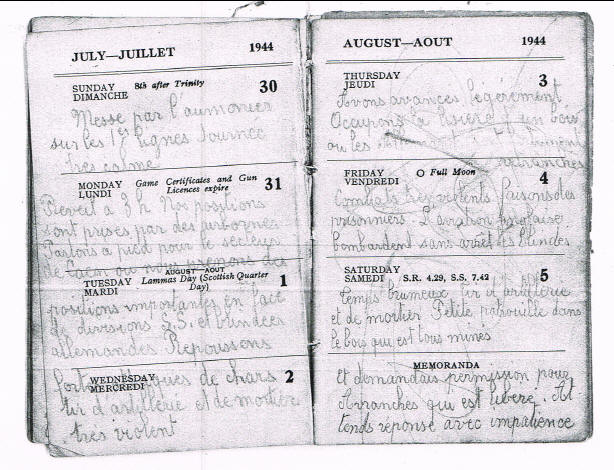 JULY—JUILLET 1944
SUNDAY 8th after Trinity 30
DIMANCHE
Messe par l'aumonier
sur les 1eres lignes Journée
très calme
MONDAY Game Certificates and Gun 31
LUNDI Licences expire
Reveil à 3 h Nos positions
sont prises par des airbornes
Partons a pied pour le secteur
de Caen ou nous prenons des
AUGUST—AOUT
TUESDAY Lammas Day (Scottish Quarter 1
MARDI Day)
positions importantes en face
de divisions S.S. et blindées
allemandes Repoussons
WEDNESDAY 2
MERCREDI
fortes de chars
tir d'artillerie et de mortier
très violent
AUGUST—AOUT 1944
THURSDAY 3
JEUDI
Avons avancés légèrement
Occupons la lisière d'un bois
ou les
retranchés
FRIDAY O Full Moon 4
VENDREDI
Combats très violents faisons des
prisonniers. L'aviation anglaise
bombardent sans arrêt les blindés
SATURDAY S.R. 4.29, S.S. 7.42 5
SAMEDI
Temps brumeux Tir d'artillerie
et de mortier Petite patrouille dans
le bois qui est tous minés
MEMORANDA
et demandais permission pour
Avranches qui est libéré. At
tends réponse avec impatience